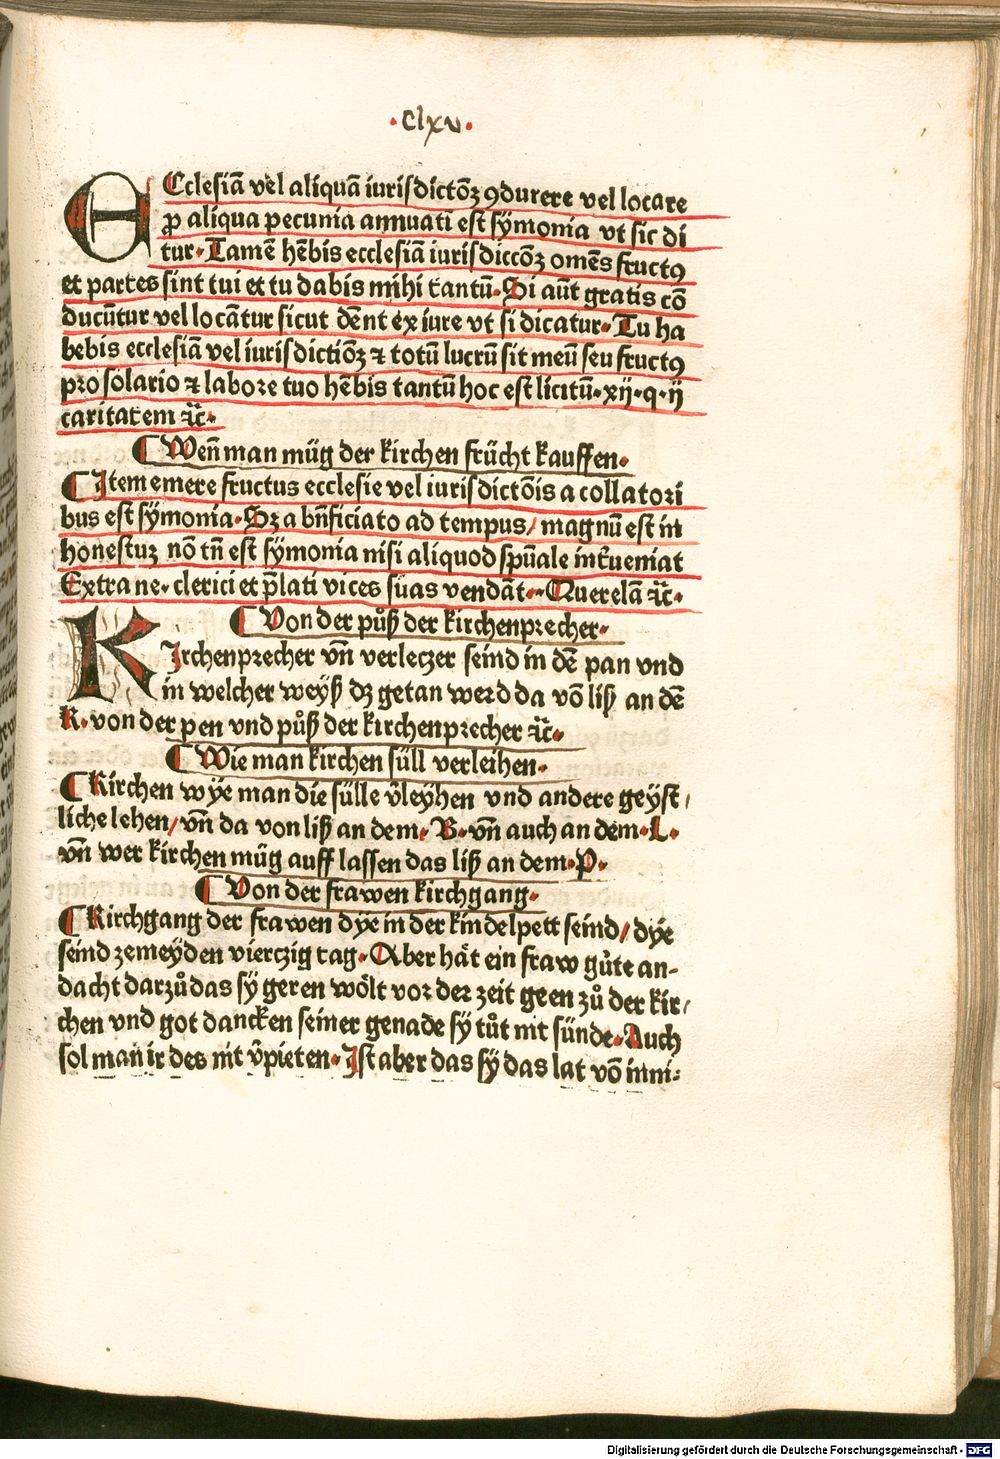 ·Clxv·
ECclesiā vel aliquā iurisdictōꝫ ꝯducere vel locare
ꝓ aliqua pecunia annuatī est sÿmonia vt sic di
tur·Tamē hēbis ecclesiā iurisdiccōꝫ omēs fructꝰ
et partes sint tui et tu dabis mihi tantū·Si aūt gratis cō
ducūtur vel locātur sicut dēnt ex iure vt si dicatur·Tu ha
bebis ecclesiā vel iurisdictiōꝫ ⁊ totū lucrū sit meū seu fructꝰ
pro solario ⁊ labore tuo hēbis tantū hoc est licitū·xij·q·ij
caritatem ⁊c̄·
¶Weñ man müg der kirchen frücht kauffen·
¶Item emere fructus ecclesie vel iurisdictōis a collatori
bus est sÿmonia·Sꝫ a bn̄ficiato ad tempus/magnū est in
honestuꝫ nō tn̄ est sÿmonia nisi aliquod spūale int̄ueniat
Extra ne·clerici et p̄lati vices suas vendāt·Querelā ⁊c̄·
¶Von der půß der kirchenprecher·
KIrchenprecher vñ verleczer seind in dē pan vnd
in welcher weÿß dꝫ getan werd da vō liß an dē
K·von der pen vnd půß der kirchenprecher ⁊c̄·
¶Wie man kirchen süll verleihen·
¶Kirchen wÿe man die sülle v̄leÿhen vnd andere geÿst/
liche lehen/vñ da von liß an dem·B·vñ auch an dem·L·
vñ wer kirchen müg auff lassen das liß an dem·P·
¶Von der frawen kirchgang·
¶Kirchgang der frawen dÿe in der kindelpett seind/dÿe
seind zemeÿden vierczig tag·Aber hät ein fraw gůte an-
dacht darzů das sÿ geren wölt vor der zeit geen zů der kir/
chen vnd got dancken seiner genade sÿ tůt nit sünde·Auch
sol man ir des nit v̄pieten·Ist aber das sÿ das lat vō inni:
Digitalisierung gefördert durch die Deutsche Forschungsgemeinschaft - DFG